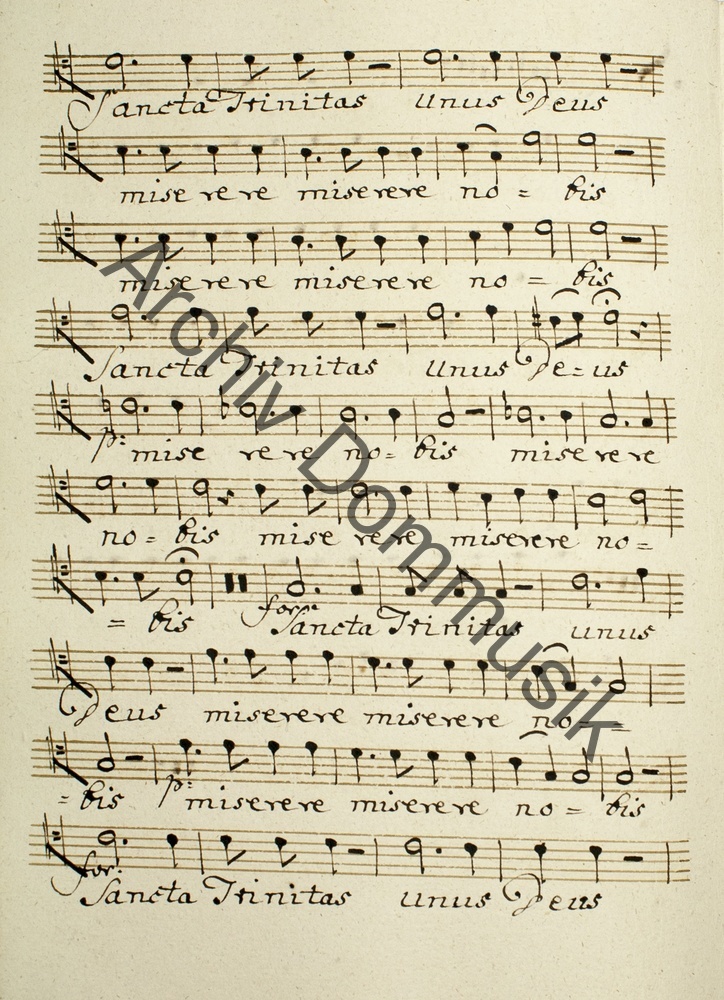 Sancta Trinitas unus Deus
misere re re miserere no = bis
miserere re miserere no = bis
Sancta Trinitas unus De = us
p: mise re re no = bis mise re re
no = bis mise re re miserere no =
= bis for: Sancta Trinitas unus
Deus miserere miserere no =
= bis p: miserere miserere no = bis
for: Sancta Trinitas unus Deus
Archiv Dommusik